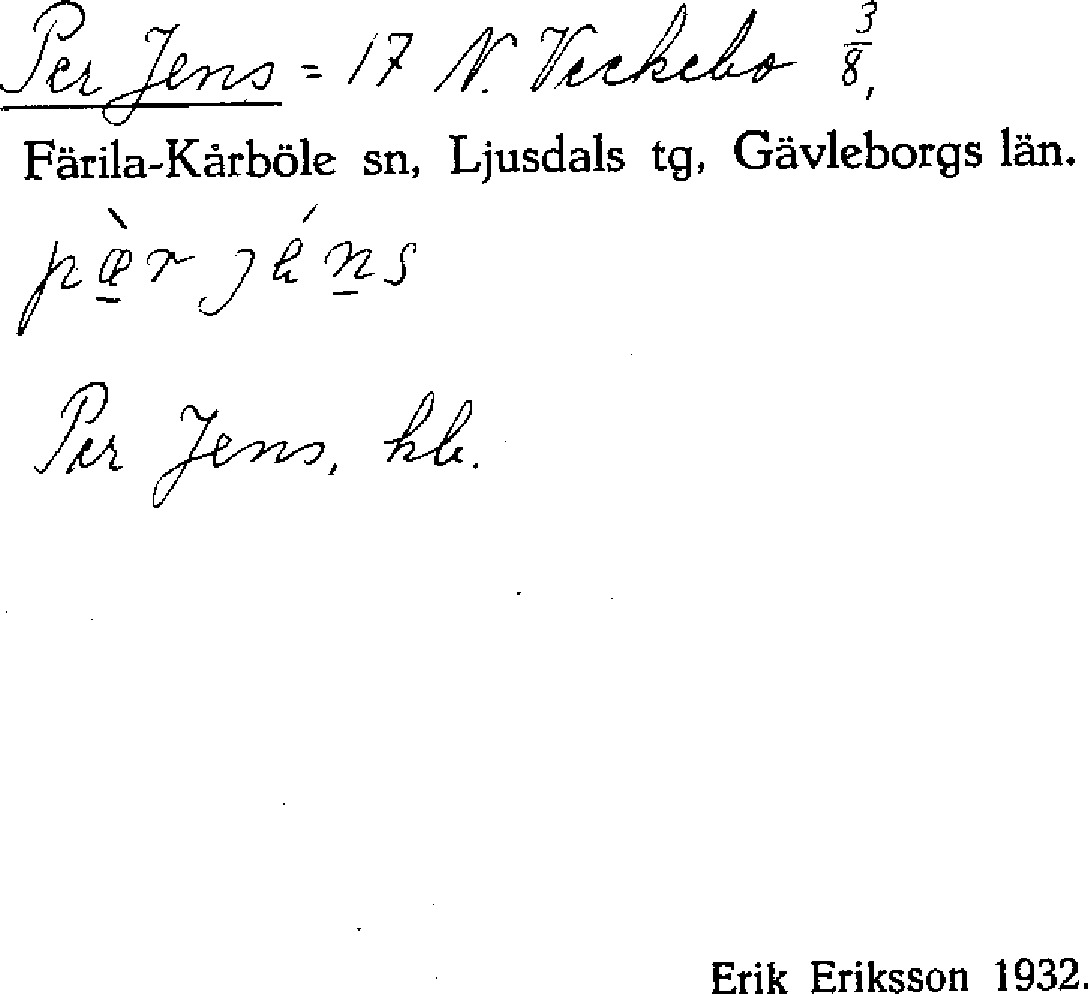 Per Jens = 17 N. Veckebo 3/8,
Färila-Kårböle sn, Ljusdals tg, Gävleborgs län.
pæ̠̀r jén̠s
Per Jens, kb.
Erik Eriksson 1932.